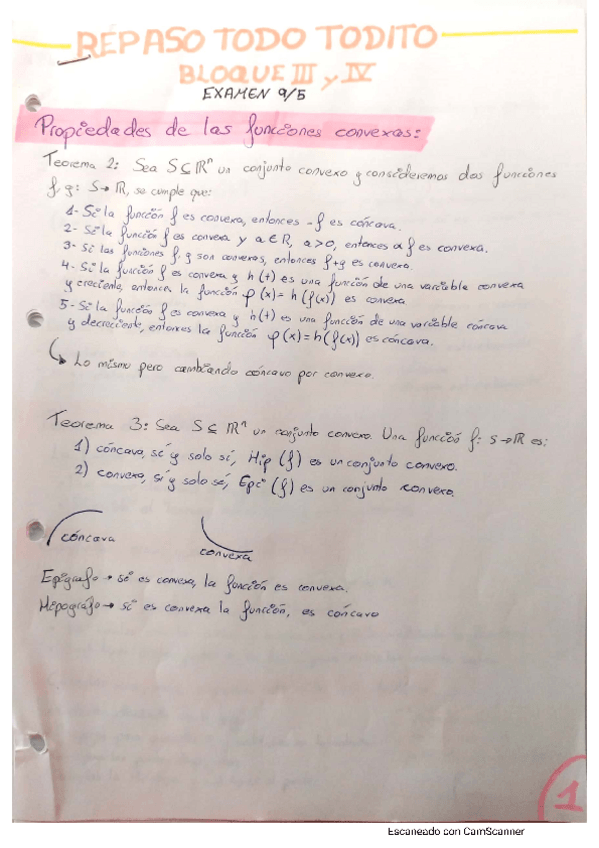 REPASO TODO TODITO
BLOQUE III y IV
EXAMEN 9/5
Propiedades de las funciones convexas:
Teorema 2: Sea S ⊆ ℝⁿ un conjunto convexo y consideremos dos funciones
f, g: S → ℝ, se cumple que:
1- Si la función f es convexa, entonces -f es cóncava.
2- Si la función f es convexa y α ∈ ℝ, α > 0, entonces α f es convexa.
3- Si las funciones f, g son convexas, entonces f+g es convexa.
4- Si la función f es convexa y h(t) es una función de una variable convexa
y creciente, entonces la función φ(x) = h(f(x)) es convexa
5- Si la función f es convexa y h(t) es una función de una variable cóncava
y decreciente, entonces la función φ(x) = h(f(x)) es cóncava.
Lo mismo pero cambiando cóncavo por convexo.
Teorema 3: Sea S ⊆ ℝⁿ un conjunto convexo. Una función f: S → ℝ es:
1) cóncava, sí y solo sí, Hip (f) es un conjunto convexo.
2) convexa, sí y solo sí, Epi (f) es un conjunto convexo.
cóncava
convexa
Epígrafo → si es convexa, la función es convexa.
Hipográfo → si es convexa la función, es cóncavo
1
Escaneado con CamScanner